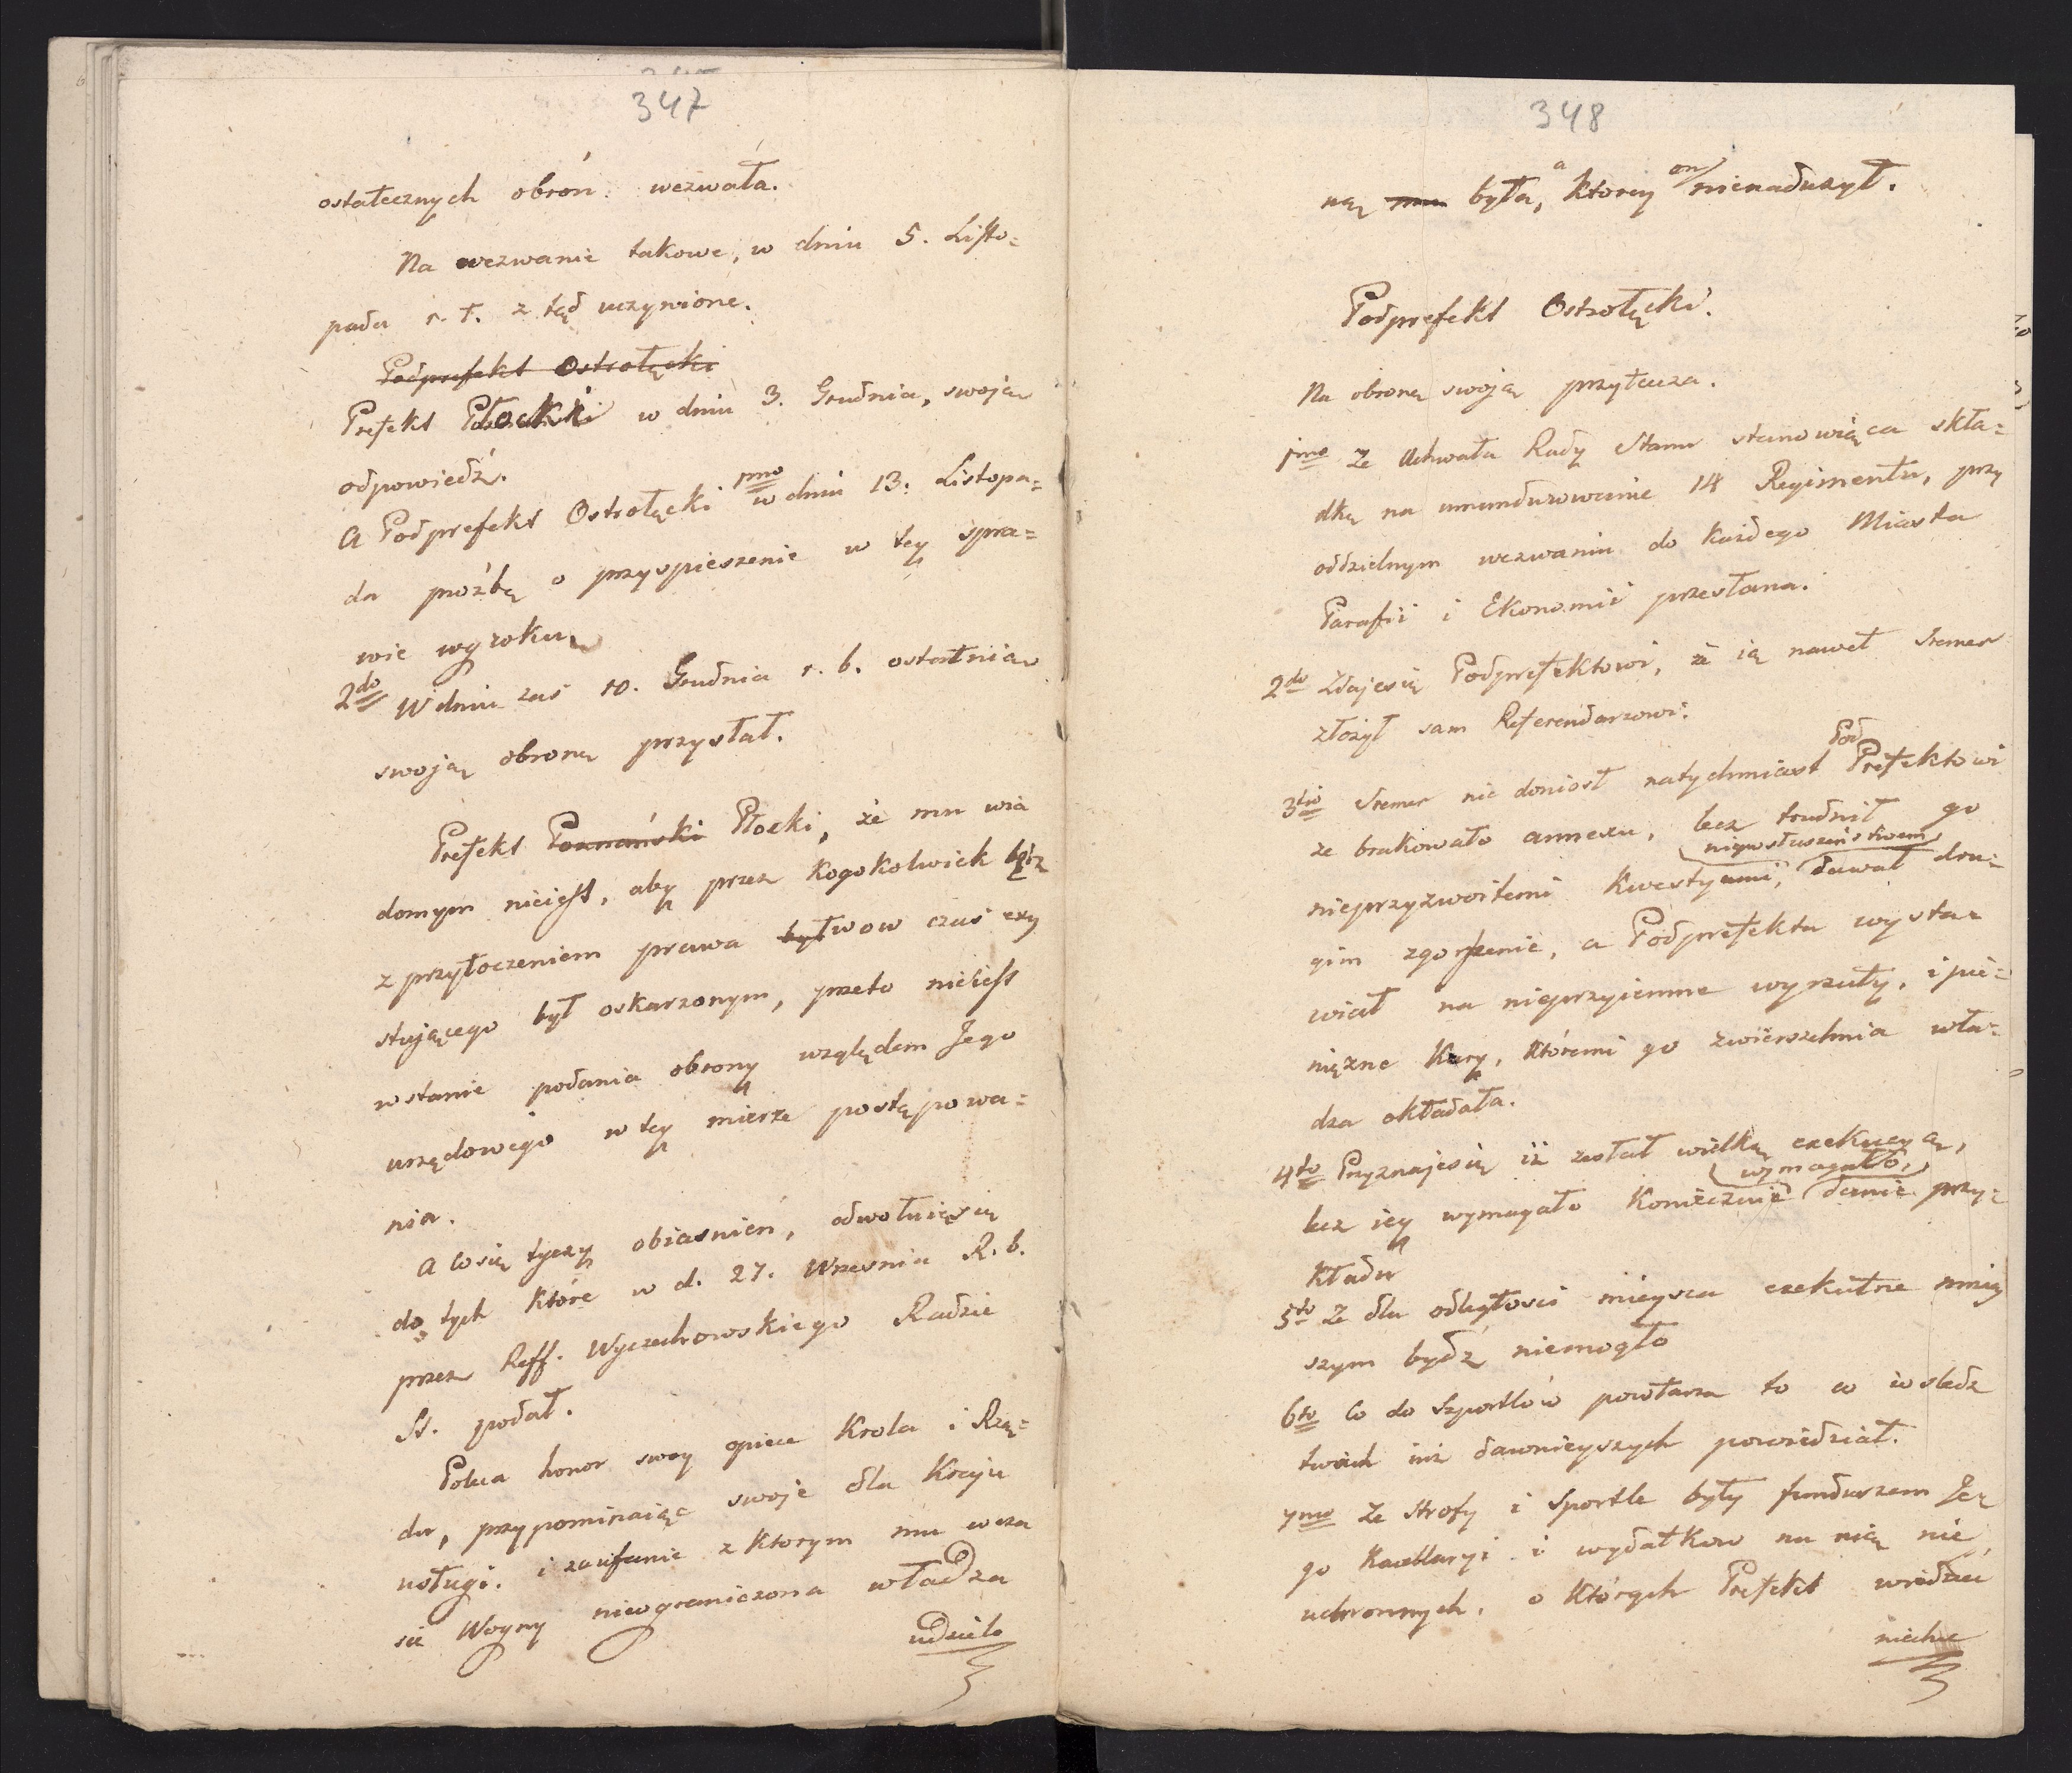 347
ostatecznych obrón wezwała.
Na wezwanie takowe, w dniu 5. Listo=
pada r. t. z tąd uczynione.
Podprefekt Ostrołęcki
Prefekt Płocki w dniu 3. Grudnia, swoją
odpowiedź.
A Podprefekt Ostrołęcki 1mo w dniu 13. Listopa=
da proźbę o przyspieszenie w tey spra=
wie wyroku,
2do W dniu zaś 10. Grudnia r. b. ostatnią
swoją obronę przysłał.
Prefekt Poznański Płocki, że mu wia
domym nieiest, aby przez kogokolwiek bądź
z przytoczeniem prawa był wow czas exy
stującego był oskarzonym, przeto nieiest
wstanie podania obrony względem Jego
urzędowego w tey mierze postępowa=
nia.
A co się tyczy obiasnień, odwołuie się
do tych które w d. 27. Wrzesnia R. b.
przez Reff. Wyczechowskiego Radzie
St. podał.
Poleca honor swoy opiece Krola i Rzą=
du, przypominaiąc swoje dla Kraju
usługi. i zaufanie z ktorym mu w cza
sie Woyny nieograniczona władza
udzielo
348
ną mu była, a ktorey on nienadużył.
Podprefekt Ostrołęcki.
Na obronę swoją przytacza.
1mo Ze Uchwała Rady Stanu stanowiąca skła=
dkę na umundurowanie 14 Regimentu, przy
oddzielnym wezwaniu do każdego Miasta
Parafii i Ekonomii przesłana.
2do Zdaje się Podprefektowi, że ią nawet Sremer
złożył sam Referendarzowi.
3tio Sremer nie doniosł natychmiast Pod Prefektowi
ze brakowało annexu, lecz trudnił go
nieprzyzwoitemi kwestyami, nieposłuszeństwem dawał dru=
gim zgorszenie, a Podprefekta wysta
wiał na nieprzyiemne wyrzuty, i pie=
niężne kary, któremi go zwierzchnia wła=
dza okładała.
4to Przyznaje się iż zesłał wielką exekucyą,
lecz iey wymagało koniecznie wymagało, danie przy=
kładu
5to Ze dla odległosci mieysca exekutne mniey
szym bydź niemogło
6to Co do Szportlów powtarza to co w sledz
twach iuż dawnieyszych powiedział.
7mo Ze Strofy i Sportle były funduszem Je
go Kancellaryi i wydatkow na nią nie
uchronnych, o których Prefekt wiedzieć
niechce